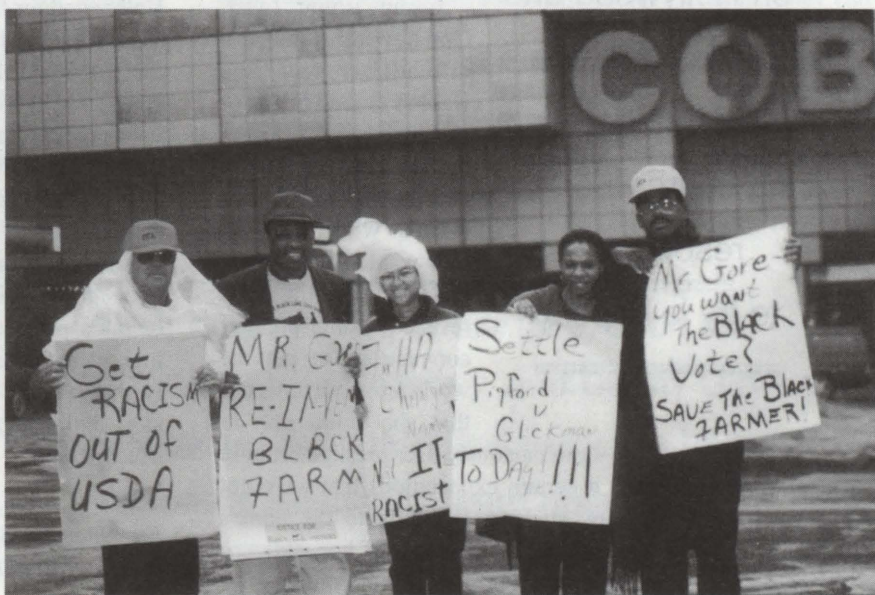 COB
Get
RACISM
OUT OF
USDA
MR.
RE-INVEN
BLACK
FARM
JUSTICE FOR
HA
Change
Name
Not IT
RACIST
Settle
Pigford
v
Glckman
To Day!!!!
Mr. Gore-
you want
The BLACK
Vote?
SAVE The Black
FARMER!